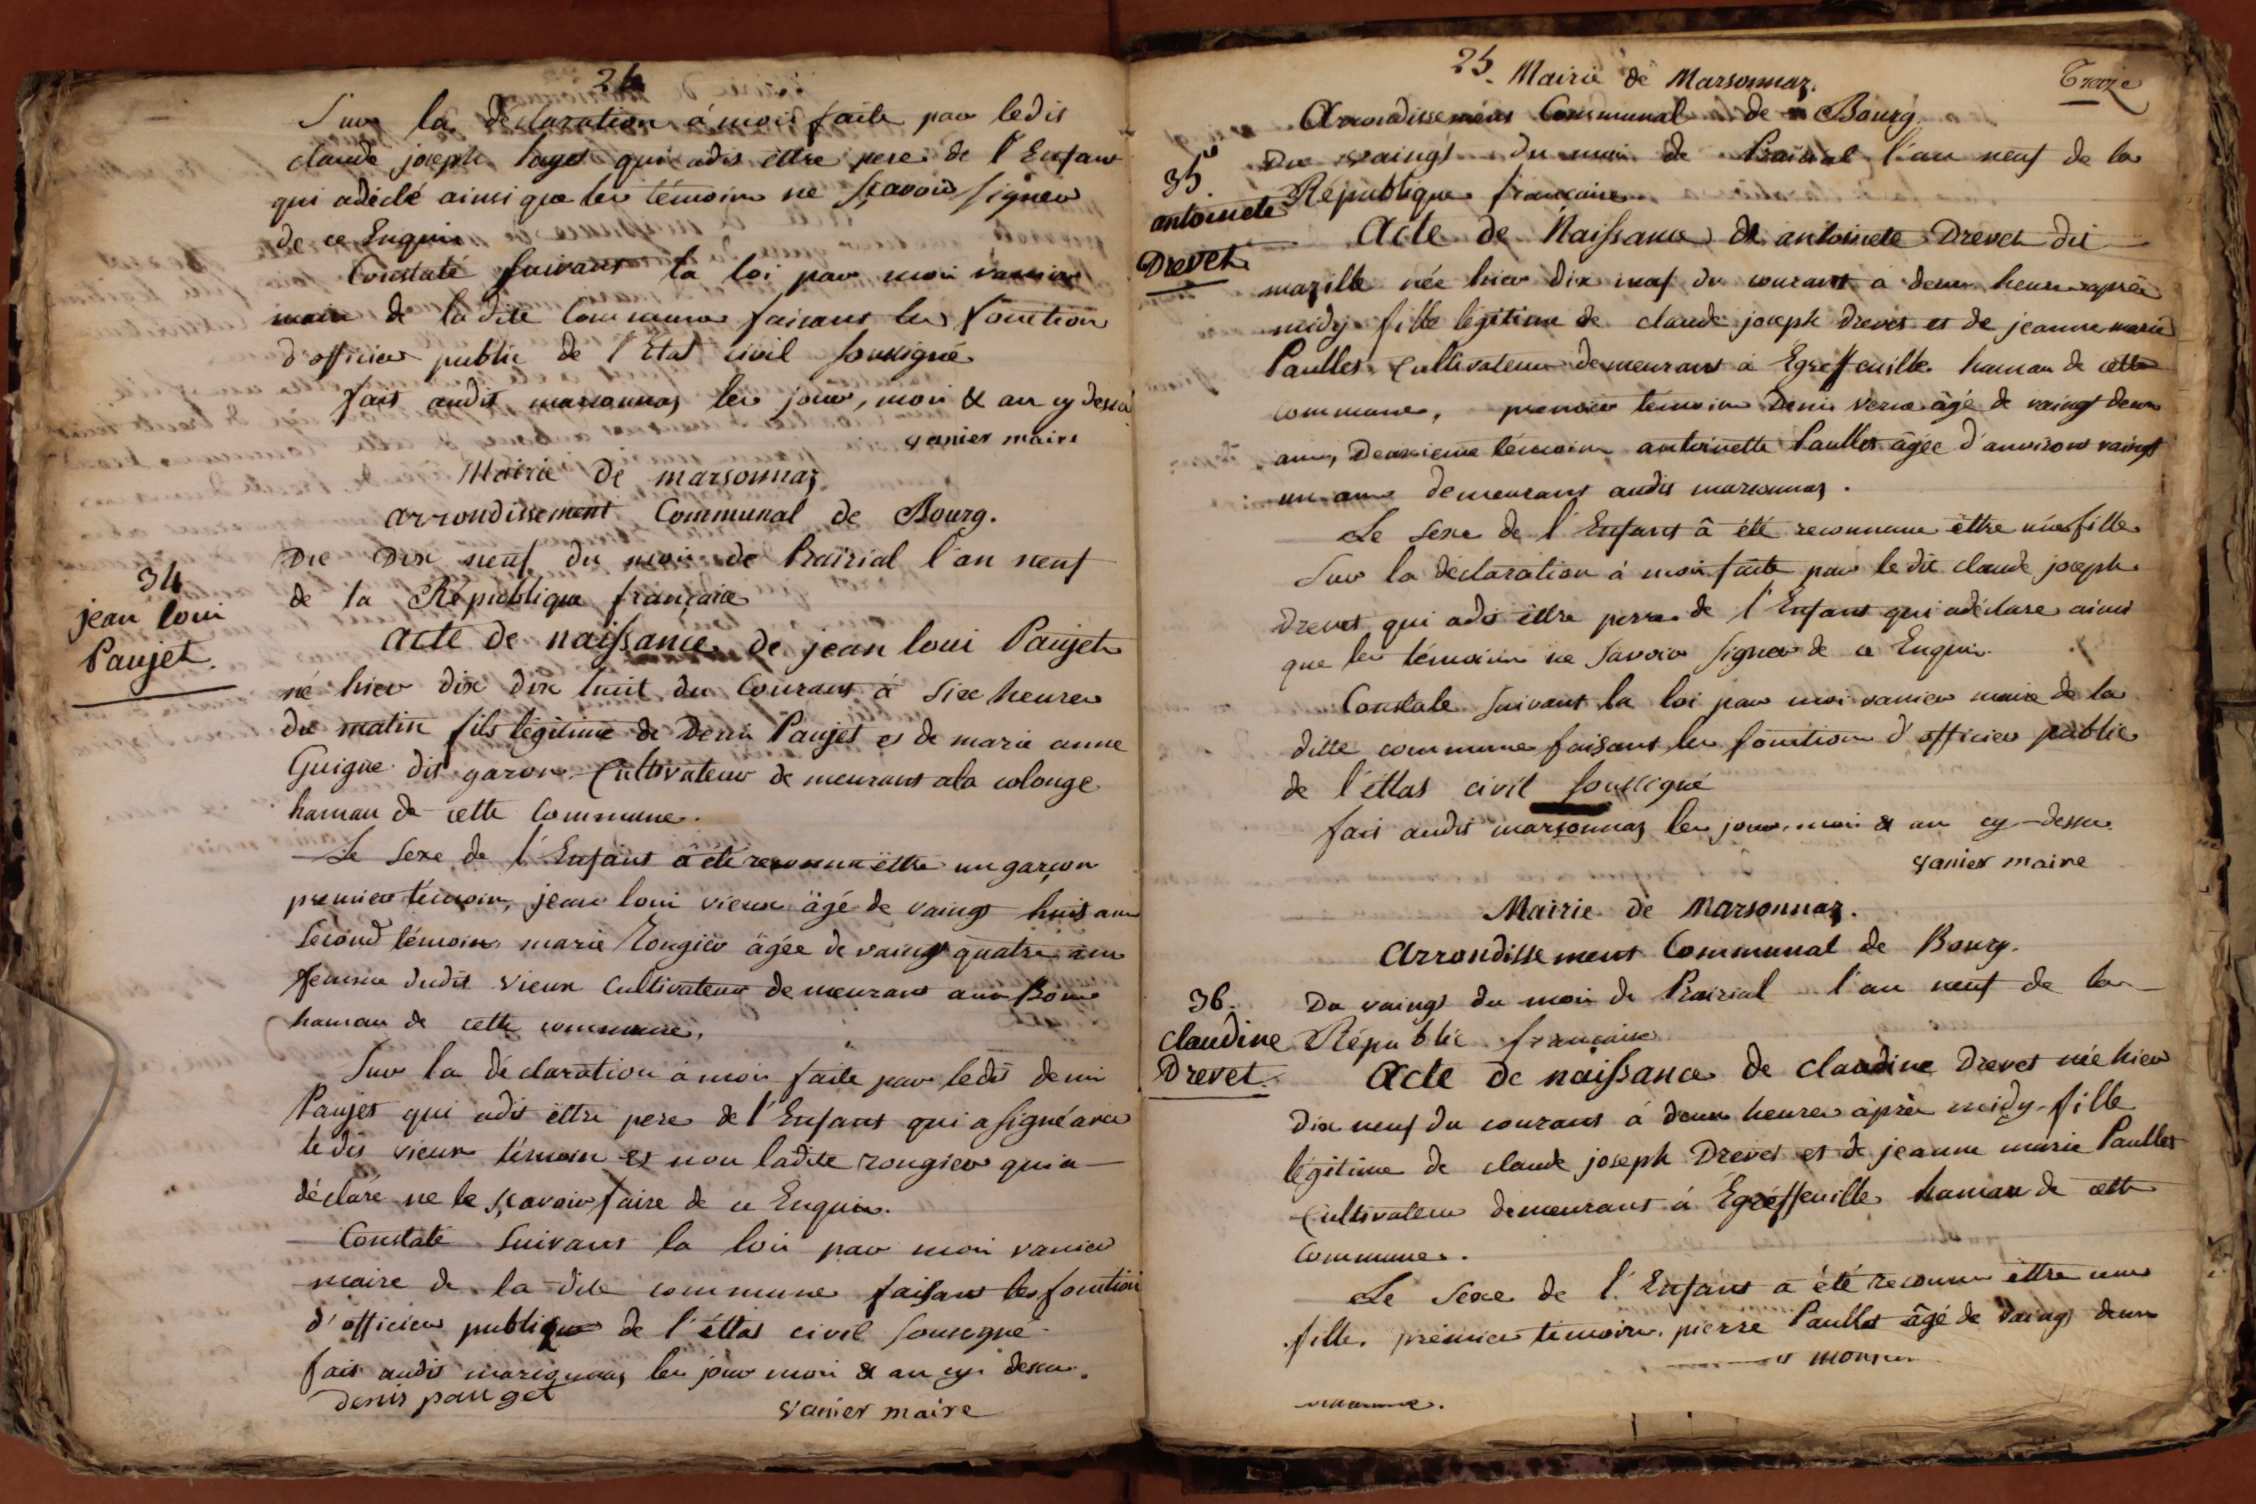 24
Sur la déclaration à moi faite par ledit
claude joseph qui adit ëttre pere de l'Enfant
qui adéclé ainsi que les témoins ne sçavoir signer
de ce Enquis
Constaté suivant la loi par moi vanier
maire de ladite Commune faisant les fonction
d'officier public de l'Etat civil soussigné
fait audit marsonnaz les jour, moi & an cy dessu
vanier maire
Mairie de marsonnaz
arrondissement Communal de Bourg.
34
jean loui
Paujet.
Du Dix neuf du moi de Prairial l'an neuf
de la République française
acte de naissance de jean loui Paujet
né hier dix dix huit du Courant à six heures
du matin fils légitime de Deni Paujet et de marie anne
Guigue dit garon Cultivateur demeurant ala colonge
hamau de cette Commune.
Le sexe de l'Enfant a été reconnu ëttre un garçon
premier témoin, jean loui vieux âgé de vaingt huit ans
second témoin marie Rougier âgée de vaingt quatre ans
femme dudit vieux Cultivateur demeurant aux
hamau de cette commune.
Sur la déclaration à moi faite par ledit deni
Paujet qui adit ëttre pere de l'Enfant qui a signé avec
ledit vieux témoin et non ladite rougier qui a
déclaré ne le sçavoir faire de ce Enquis.
Constaté suivant la loi par moi vanier
maire de la dite commune faisant les fonction
d'officier publique de l'éttat civil sousigné
fait audit les jour moi & an cy dessu.
denis pauget
vanier maire
25. Mairie de Marsonnaz.
Treize
Arrondissement Communal de Bourg
35
antoinete
Drevet
Du vaingt du moi de Prairial l'an neuf de la
République française
Acte de Naissance de antoinete Drevet dit
mazille née hier dix neuf du courant a deux heures après
midy fille légitime de claude joseph drevet et de jeanne marie
Paullet Cultivateur demeurant à Egreffeuille hamau de cette
commune, premier témoin Deni âgé de vaingt deux
ans, Deuxieme témoin antoinette Paullet âgée d'environt vaingt
un ans demeurant audit marsonnaz.
Le sexe de l'Enfant â été reconnue ëttre une fille
Sur la déclaration à moi faite par le dit claude joseph
Drevet qui adit ëttre perre de l'Enfant qui adéclare ainsi
que les témoins ne savoir signer de ce Enquis
Constate suivant la loi par moi vanier maire de la
ditte commune faisant les fonction d'officier public
de l'éttat civil soussigné
fait audit marsonnaz les jour, moi & an cy-dessu
vanier maire
Mairie de Marsonnaz.
Arrondissement Communal de Bourg.
36.
claudine
Drevet.
Du vaingt du moi de Prairial l'an neuf de la
Républic française
Acte de naissance de claudine Drevet née hier
dix neuf du courant à deux heures àprès midy fille
légitime de claude joseph Drevet et de jeanne marie Paullet
Cultivateur demeurant à Egréffeuille hamau de cette
Commune.
Le sexe de l'Enfant a été reconnu ëttre une
fille. prémier témoin. pierre Paullet âgé de vaingt deux